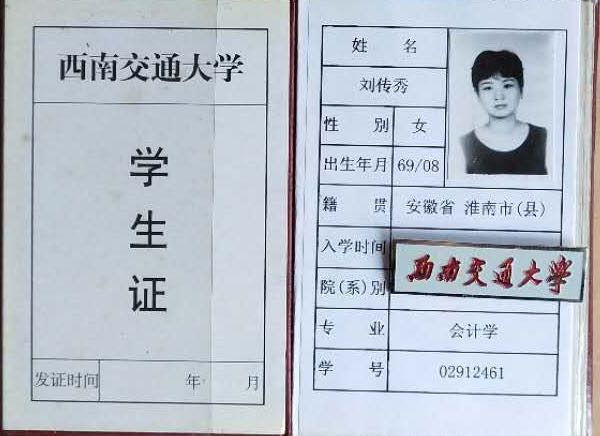 西南交通大学
学
生
证
发证时间 年 月
姓 名
刘传秀
性 别 女
出生年月 69/08
籍 贯 安徽省 淮南市(县)
入学时间
西南交通大学
院(系)别
专 业 会计学
学 号 02912461